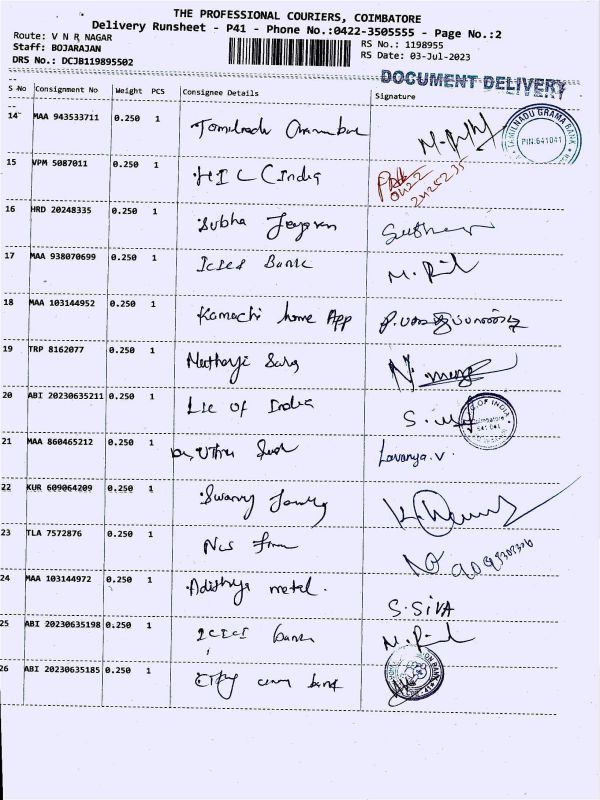 THE PROFESSIONAL COURIERS, COIMBATORE
Delivery Runsheet - P41 - Phone No.:0422-3505555 - Page No.:2
Route: V N R NAGAR RS No.: 1198955
Staff: BOJARAJAN RS Date: 03-Jul-2023
DRS No.: DCJB119895502
DOCUMENT DELIVERY
S No Consignment No Weight PCS Consignee Details Signature
14 MAA 943533711 0.250 1 Tamilnadu
TAMILNADU GRAMA BANK
PIN:641041
15 VPM 5087011 0.250 1 India
16 HRD 20248335 0.250 1 Subha
17 MAA 938070699 0.250 1 Icici Bank
18 MAA 103144952 0.250 1 Kamachi home App
19 TRP 8162077 0.250 1
20 ABI 20230635211 0.250 1 Lic of India
OF INDIA
641 041
21 MAA 860465212 0.250 1 Lavanya.V.
22 KUR 609064209 0.250 1 Swamy
23 TLA 7572876 0.250 1
24 MAA 103144972 0.250 1 Adithya metal. S.SIVA
25 ABI 20230635198 0.250 1 ICICI bank
26 ABI 20230635185 0.250 1 City bank